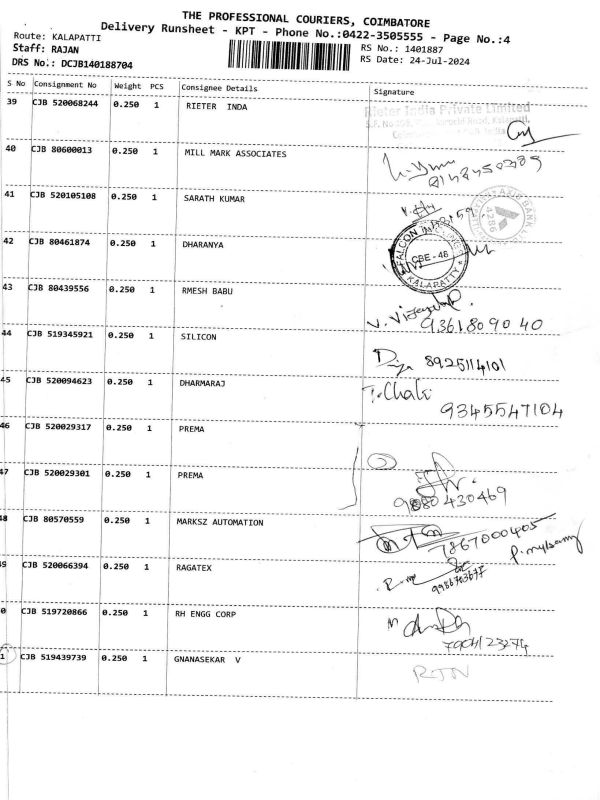 THE PROFESSIONAL COURIERS, COIMBATORE
Delivery Runsheet - KPT - Phone No.:0422-3505555 - Page No.:4
Route: KALAPATTI
Staff: RAJAN
DRS No.: DCJB140188704
RS No.: 1401887
RS Date: 24-Jul-2024
S No Consignment No Weight PCS Consignee Details Signature
39 CJB 520068244 0.250 1 RIETER INDA
Rieter India Private Limited
40 CJB 80600013 0.250 1 MILL MARK ASSOCIATES
41 CJB 520105108 0.250 1 SARATH KUMAR
AXIS BANK
42 CJB 80461874 0.250 1 DHARANYA
FALCON
CBE - 48
KALAPATTY
43 CJB 80439556 0.250 1 RMESH BABU
9361809040
44 CJB 519345921 0.250 1 SILICON
8925114101
45 CJB 520094623 0.250 1 DHARMARAJ
9345547104
46 CJB 520029317 0.250 1 PREMA
47 CJB 520029301 0.250 1 PREMA
9080430469
48 CJB 80570559 0.250 1 MARKSZ AUTOMATION
7867000405
49 CJB 520066394 0.250 1 RAGATEX
0 CJB 519720866 0.250 1 RH ENGG CORP
1 CJB 519439739 0.250 1 GNANASEKAR V
RJN